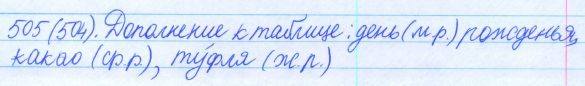 505 (504). Дополнение к таблице: день (м.р.) рожденья,
какао (ср.р), ту́фля (ж.р.)